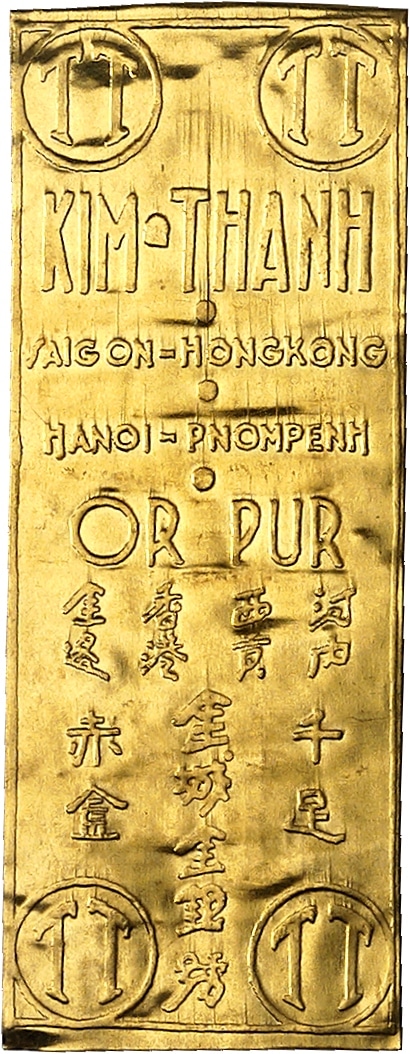 TT TT
KIM-THANH
SAIGON-HONGKONG
HANOI-PNOMPENH
OR PUR
河内
西貢
香港
金邊
千足
金城金
赤金
TT TT